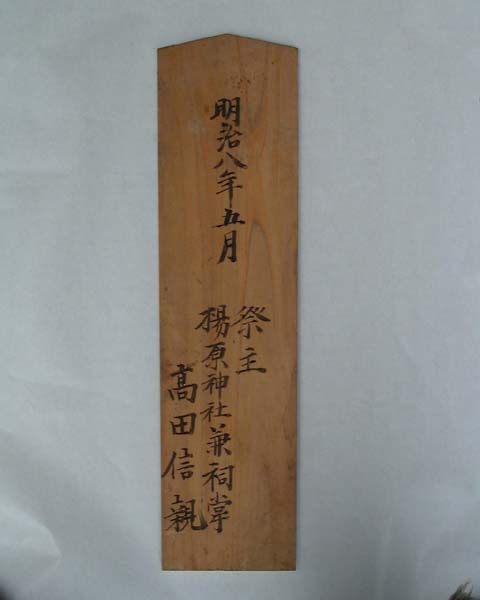 明治八年五月
祭主
楊原神社兼祠掌
髙田信親